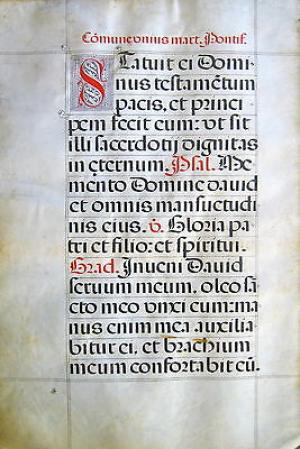 Cōmune vnius mart. Pontif.
Statuit ei Domi
nus testamētum
pacis, et princi
pem fecit eum: vt sit
illi sacerdotij dignitas
in ęternum. Psal. Me
mento Domine dauid
et omnis mansuetudi
nis eius. v̄. Gloria pa
tri et filio: et spiritui.
Grad. Inueni Dauid
seruum meum, oleo sā
cto meo vnxi eum: ma
nus enim mea auxilia
bitur ei, et brachium
meum confortabit eū.